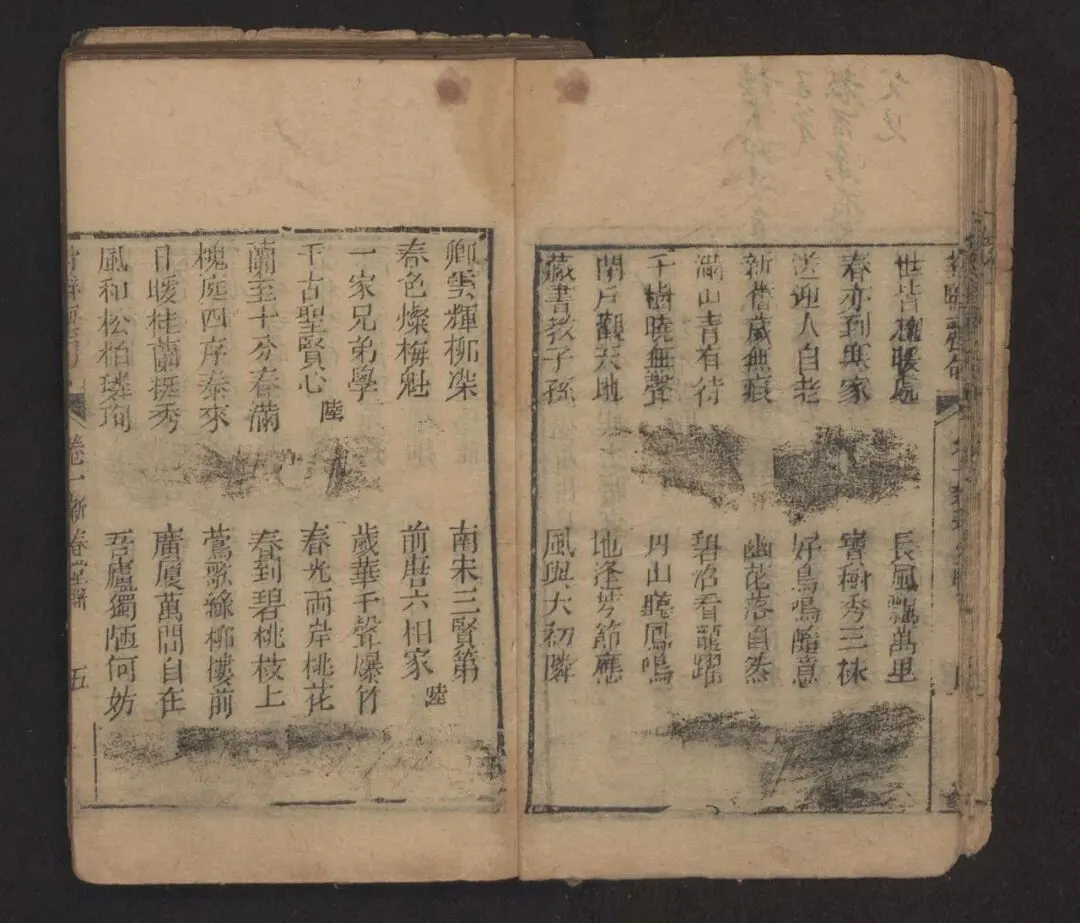 世皆和暖處
長風飄萬里
春亦到寒家
寶樹秀三株
送迎人自老
好鳥鳴隨意
新舊歲無痕
幽花落自然
滿山青有待
碧沼看龍躍
千樹曉無聲
丹山聽鳳鳴
閉戶觀天地
地逢芩節應
藏書教子孫
風與大初隣
卿雲輝柳㵤
南宋三賢第
春色燦梅魁
前唐六相家
陸
一家兄弟學
歲華千聲爆竹
千古聖賢心
陸
春光兩岸桃花
蘭至十分春滿
春到碧桃枝上
槐庭四序泰來
鶯歌綠柳樓前
日暖桂蘭挺秀
廣厦萬間自在
風和松柏璘珣
吾廬獨陋何妨
卷一
新春堂聯
五